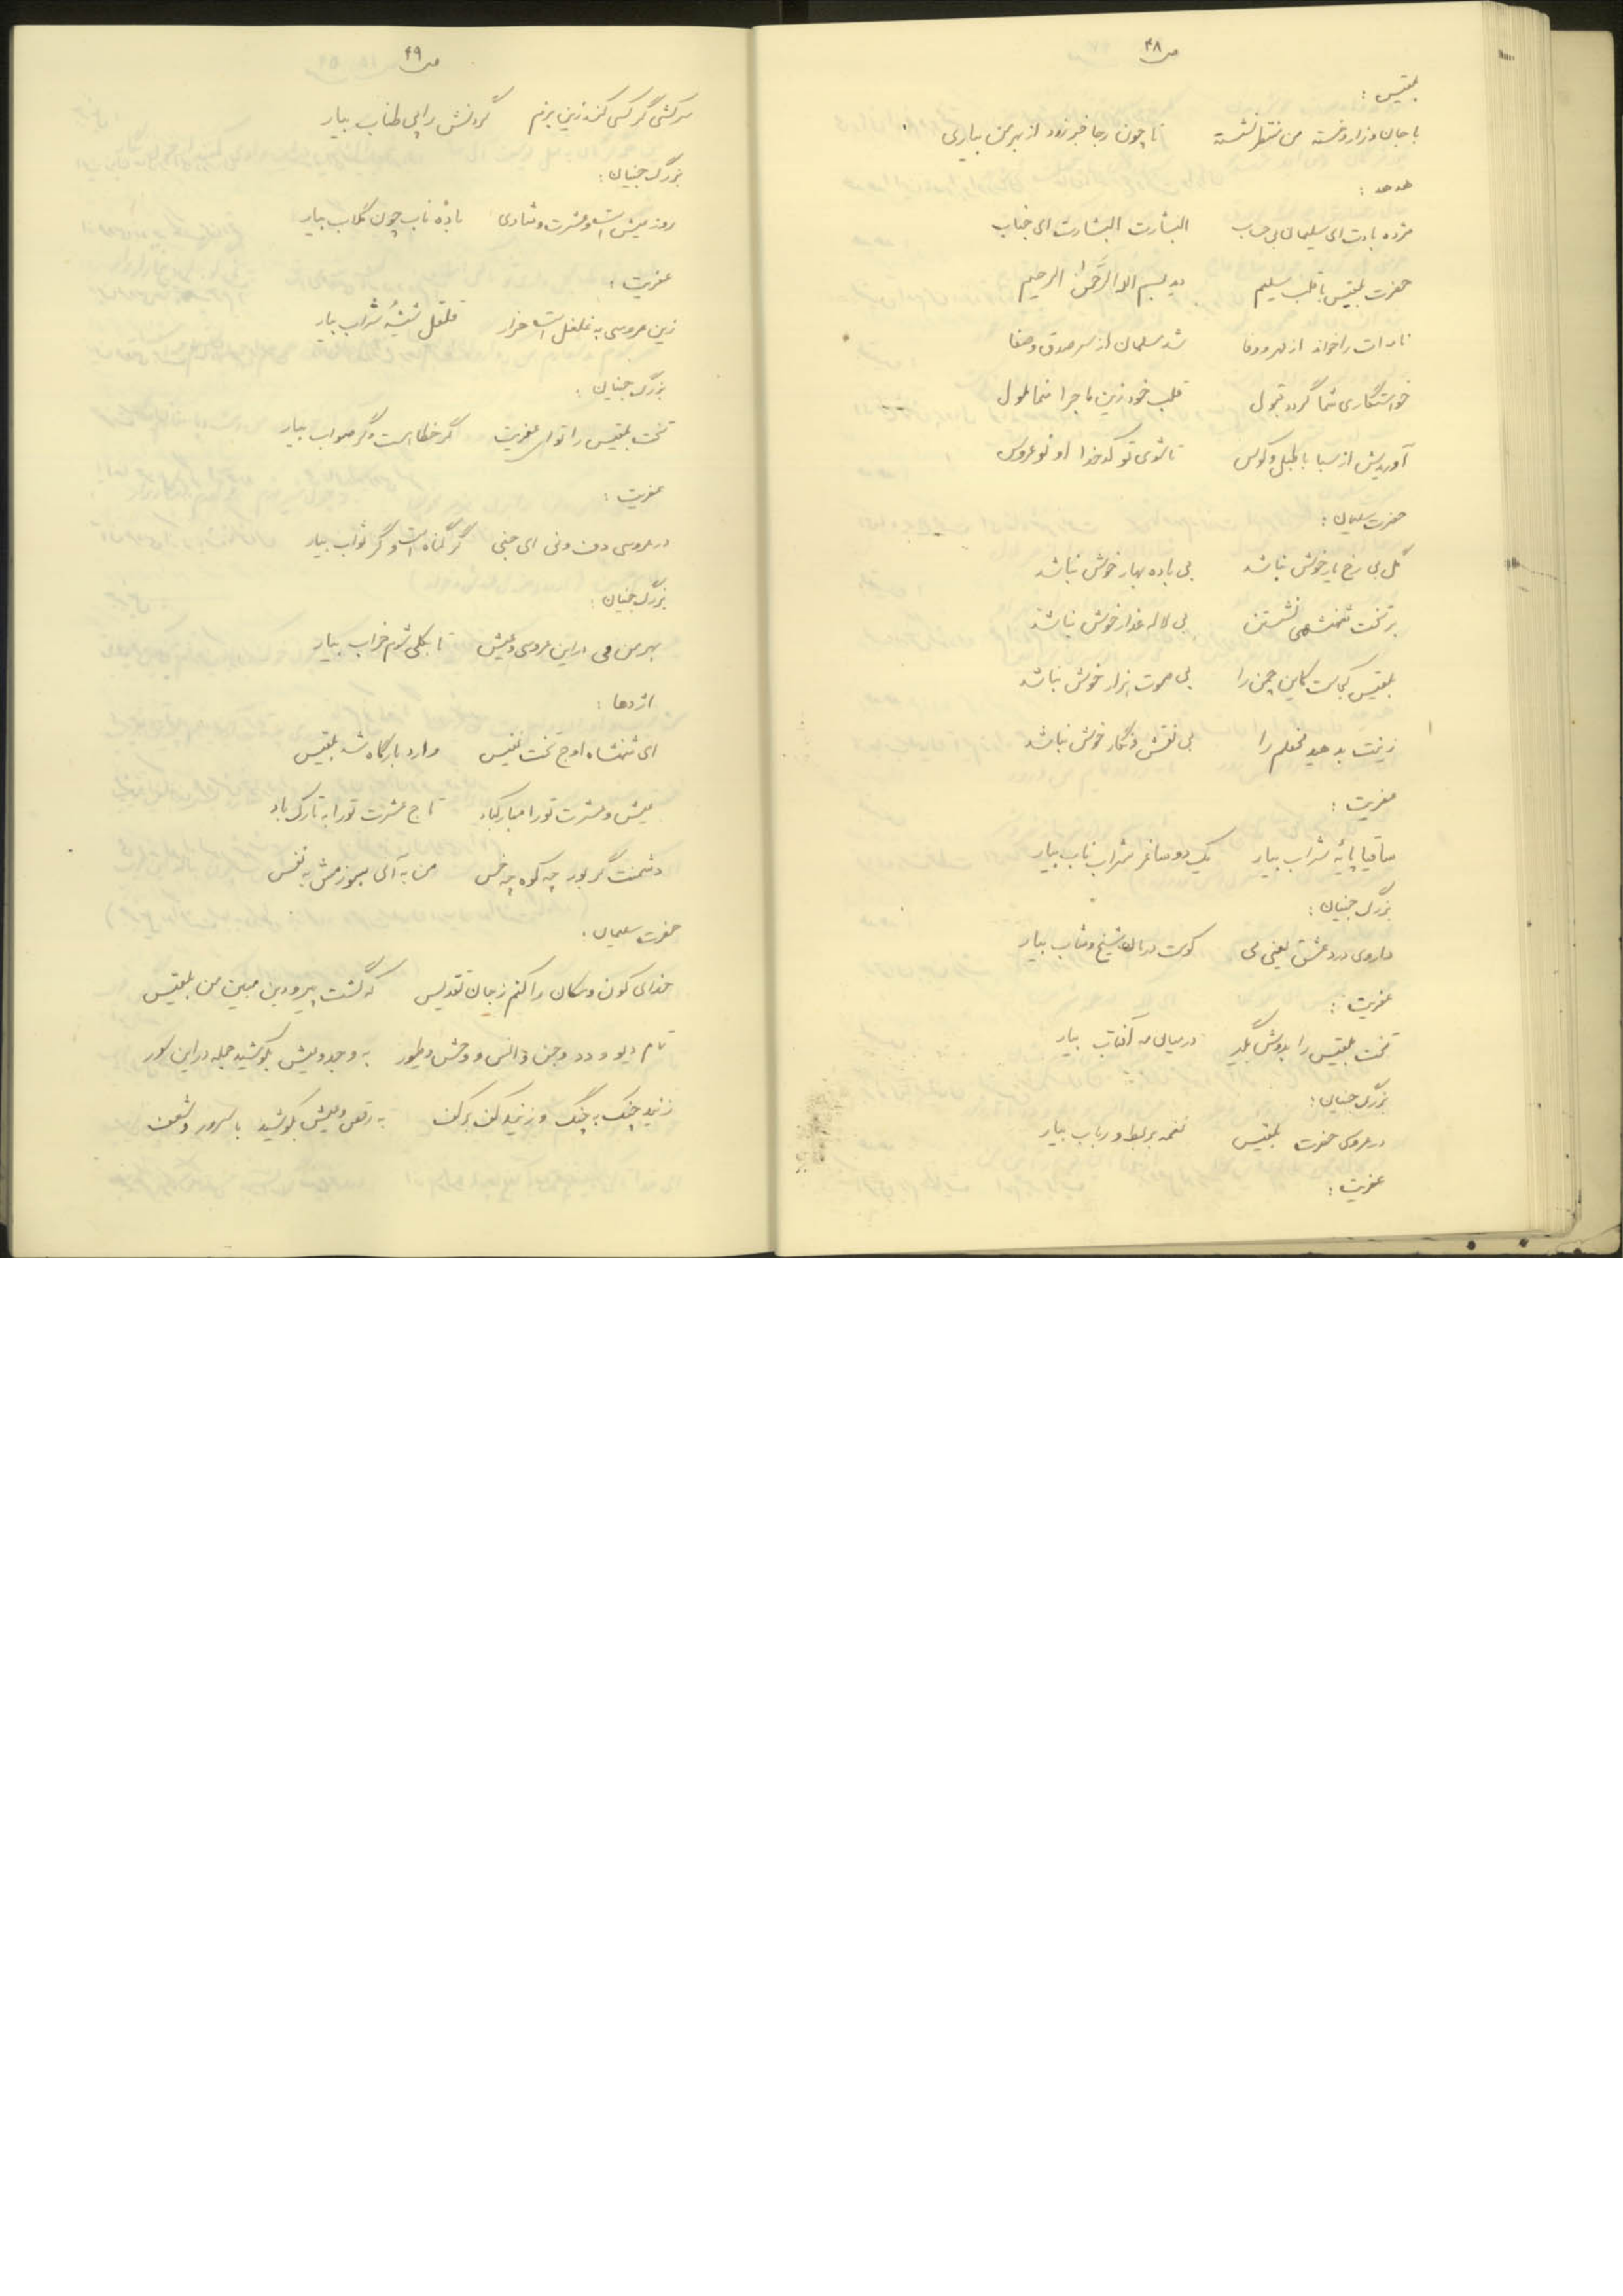 ص ۴۸
بلقیس :
با جان زار و خسته من منتظر نشسته تا چون رجا خبر زود از بهر من بیاری
هدهد :
مژده بادت ای سلیمان بی حساب البشارت البشارت ای جناب
حضرت بلقیس با قلب سلیم دید بسم الله الرحمن الرحیم
نامه ات را خواند از مهر و وفا شد مسلمان از سر صدق و صفا
خواستگاری شما گردد قبول قلب خود زین ماجرا منما ملول
آوریدش از سبا با طبل و کوس تا شوی تو کدخدا او نو عروس
حضرت سلیمان :
گل بی رخ یار خوش نباشد بی باده بهار خوش نباشد
بر تخت شهنشهی نشستن بی لاله عذار خوش نباشد
بلقیس کجاست کاین چمن را بی صوت هزار خوش نباشد
زینت بدهید محفلم را بی نقش و نگار خوش نباشد
عفریت :
ساقیا پایه شراب بیار یک دو ساغر شراب ناب بیار
بزرگ جنیان :
داروی درد عشق یعنی می کوست درمان شیخ و شاب بیار
عفریت :
تخت بلقیس را بدوش بگیر در میان مه آفتاب بیار
بزرگ جنیان :
در عروسی حضرت بلقیس نغمه بربط و رباب بیار
عفریت :
ص ۴۹
سرکشی گر کسی کند زین بزم گردنش را پی طناب بیار
بزرگ جنیان :
روز عیش است و عشرت و شادی بادۀ ناب چون گلاب بیار
عفریت :
زین عروسی به غلغل است هزار قلقل شیشۀ شراب بیار
بزرگ جنیان :
تخت بلقیس را تو ای عفریت گر خطا است و گر صواب بیار
عفریت :
در عروسی دف و نی ای جنی گر گناه است و گر ثواب بیار
بزرگ جنیان :
بهر من می در این عروسی و عیش تا بکلی شوم خراب بیار
اژدها :
ای شهنشاه اوج تخت نفیس وارد بارگاه شد بلقیس
عیش و عشرت تو را مبارکباد تاج عشرت تو را به تارک باد
دشمنت گر بود چه کوه چه خس من به آنی بسوزمش به نفس
حضرت سلیمان :
خدای کون و مکان را کنم ز جان تقدیس که گشت پیرو دین مبین من بلقیس
تمام دیو و دد و جن و انس و وحش و طیور به وجد و عیش بکوشید جمله در این سور
زنید چنگ به چنگ و زنید کف بر کف به رقص و عیش بکوشید با سرور و شعف